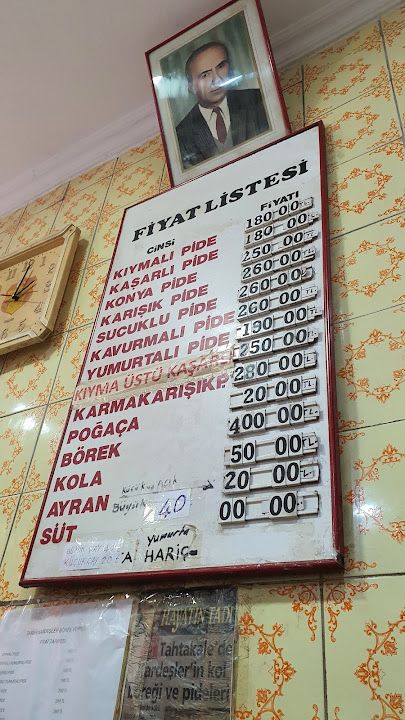 FİYAT LİSTESİ
CİNSİ FİYATI
KIYMALI PİDE 180 00
KAŞARLI PİDE 180 00
KONYA PİDE 250 00
KARIŞIK PİDE 260 00
SUCUKLU PİDE 260 00
KAVURMALI PİDE 260 00
YUMURTALI PİDE 190 00
KIYMA ÜSTÜ KAŞARL 250 00
KARMAKARIŞIKP 280 00
POĞAÇA 20 00
BÖREK 400 00
KOLA 50 00
AYRAN Büyük 40 20 00
SÜT 00 00
yumurta
HARİÇ
HAYATIN TADI
Tahtakale'de
kardeşler'in kol
böreği ve pideleri